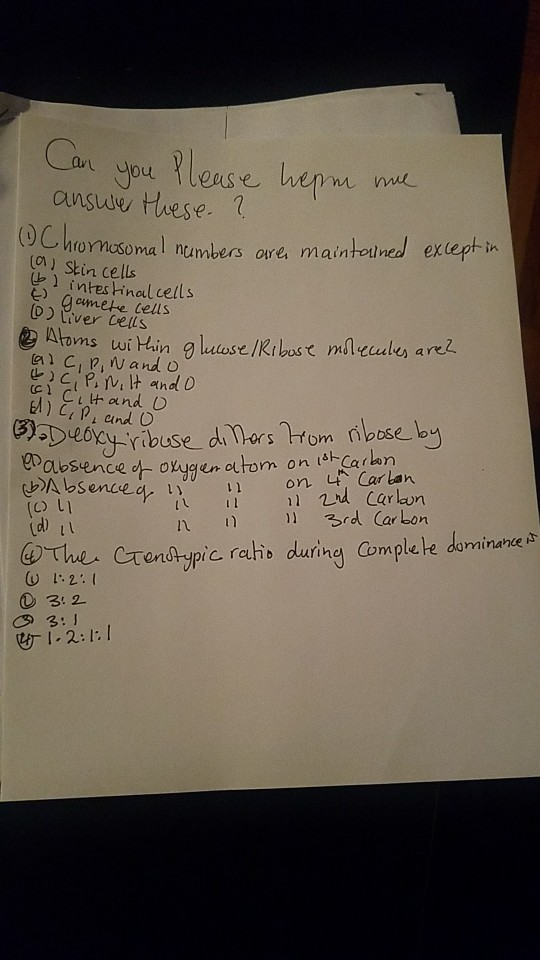 Can you Please hepm me
answer these. ?
(1) Chromosomal numbers are maintained except in
(a) Skin cells
(b) intestinal cells
(c) gamete cells
(D) liver cells
2 Atoms within glucose/Ribose molecules are?
(a) C, P, N and O
(b) C, P, N, H and O
(c) C, H and O
(d) C, P, and O
(3). Deoxyribose differs from ribose by
(a) absence of oxygen atom on 1st Carbon
(b) Absence of 11 11 on 4th Carbon
(c) 11 11 11 11 2nd Carbon
(d) 11 11 11 11 3rd Carbon
(4) The Genotypic ratio during Complete dominance is
(1) 1:2:1
(2) 3:2
(3) 3:1
(4) 1:2:1:1